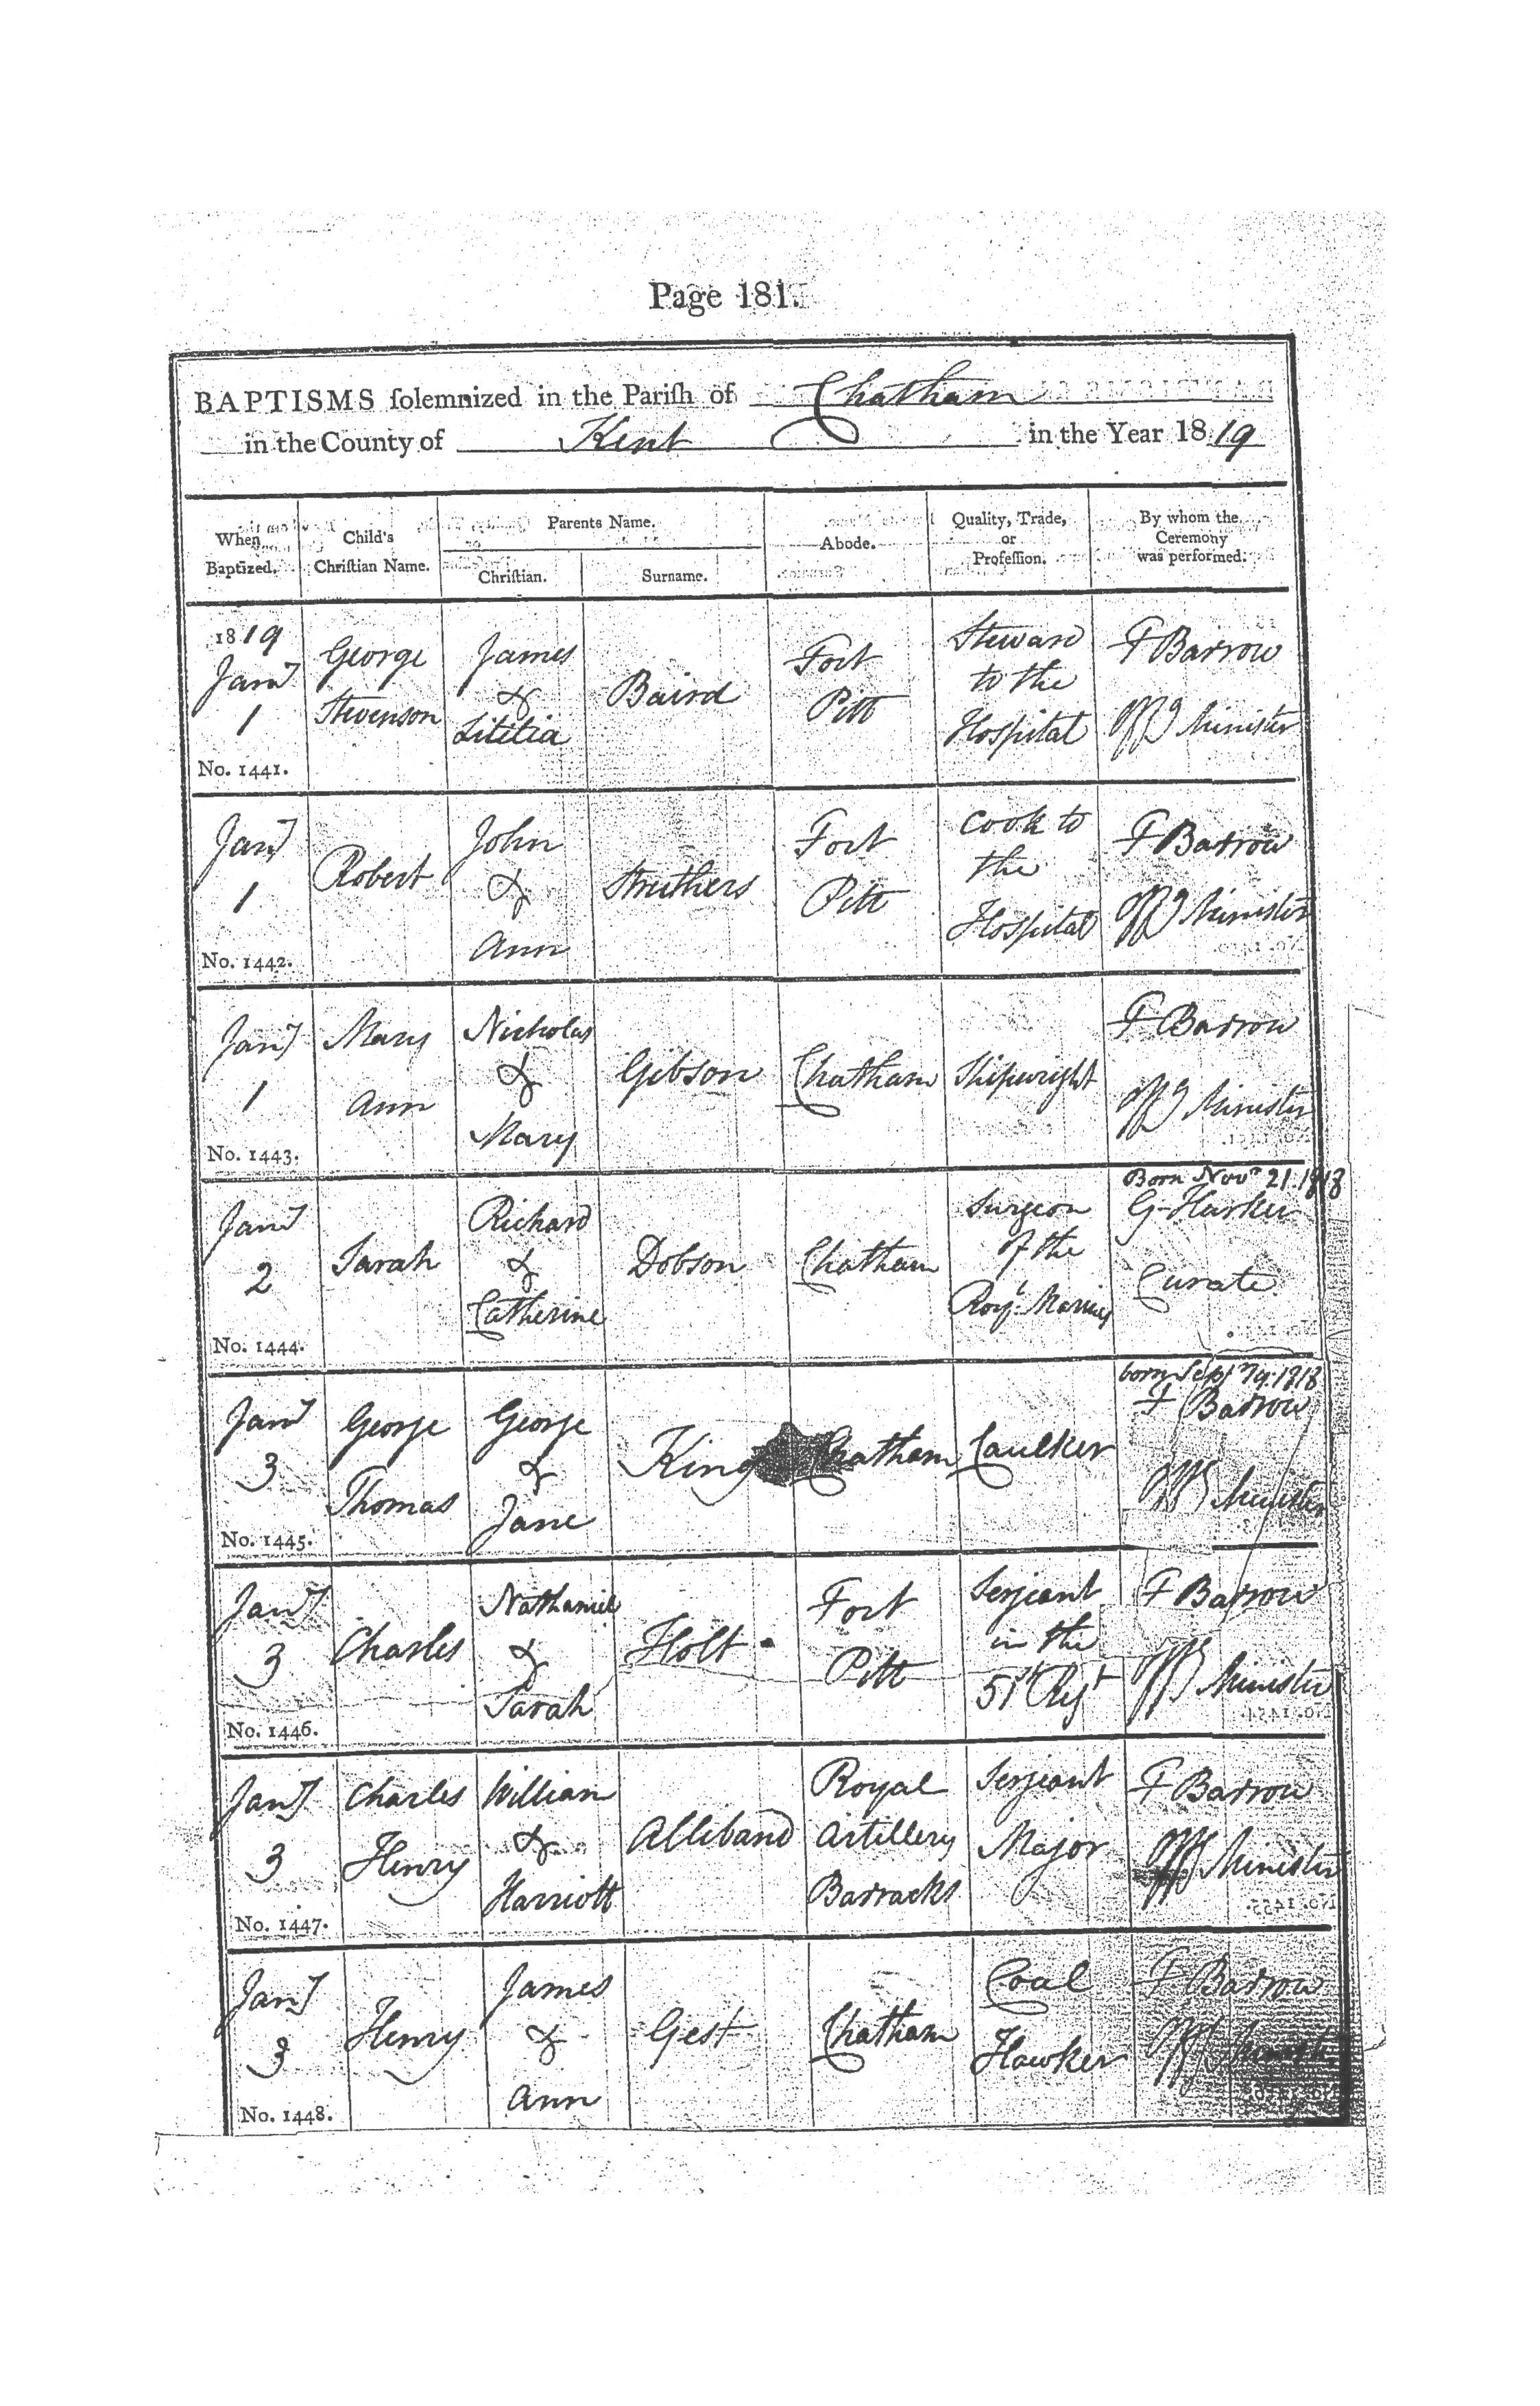 Page 181.
BAPTISMS solemnized in the Parish of Chatham
in the County of Kent in the Year 1819
When Baptized.
Child's Christian Name.
Parents Name.
Christian.
Surname.
Abode.
Quality, Trade, or Profession.
By whom the Ceremony was performed.
1819
Jany
1
No. 1441.
George
Stevenson
James
&
Lititia
Baird
Fort
Pitt
Steward
to the
Hospital
F Barrow
Offg Minister
Jany
1
No. 1442.
Robert
John
&
Ann
Struthers
Fort
Pitt
Cook to
the
Hospital
F Barrow
Offg Minister
Jany
1
No. 1443.
Mary
Ann
Nicholas
&
Mary
Gibson
Chatham
Shipwright
F Barrow
Offg Minister
Jany
2
No. 1444.
Sarah
Richard
&
Catherine
Dobson
Chatham
Surgeon
of the
Royl Marines
Born Novr 21. 1818
G Harker
Curate
Jany
3
No. 1445.
George
Thomas
George
&
Jane
King
Chatham
Caulker
born Sept 1818
F Barrow
Offg Minister
Jany
3
No. 1446.
Charles
Nathaniel
&
Sarah
Holt
Fort
Pitt
Serjeant
in the
51st Regt
F Barrow
Offg Minister
Jany
3
No. 1447.
Charles
Henry
William
&
Harriott
Alliband
Royal
Artillery
Barracks
Serjeant
Major
F Barrow
Offg Minister
Jany
3
No. 1448.
Henry
James
&
Ann
Gest
Chatham
Coal
Hawker
F Barrow
Offg Minister